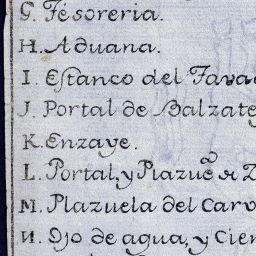 G. Tesoreria.
H. Aduana.
I. Estanco del Tava
J. Portal de Balzate
K. Enzaye.
L. Portal, y Plazue
M. Plazuela del Carv
N. Ojo de agua, y Cie